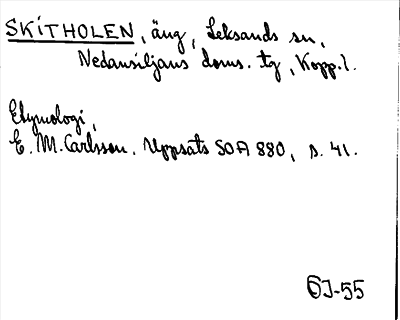 SKITHOLEN, äng, Leksands sn,
Nedansiljans doms. tg, Kopp. l.
Etymologi,
E. M. Carlsson. Uppsats SOA 880, s. 41.
GJ-55